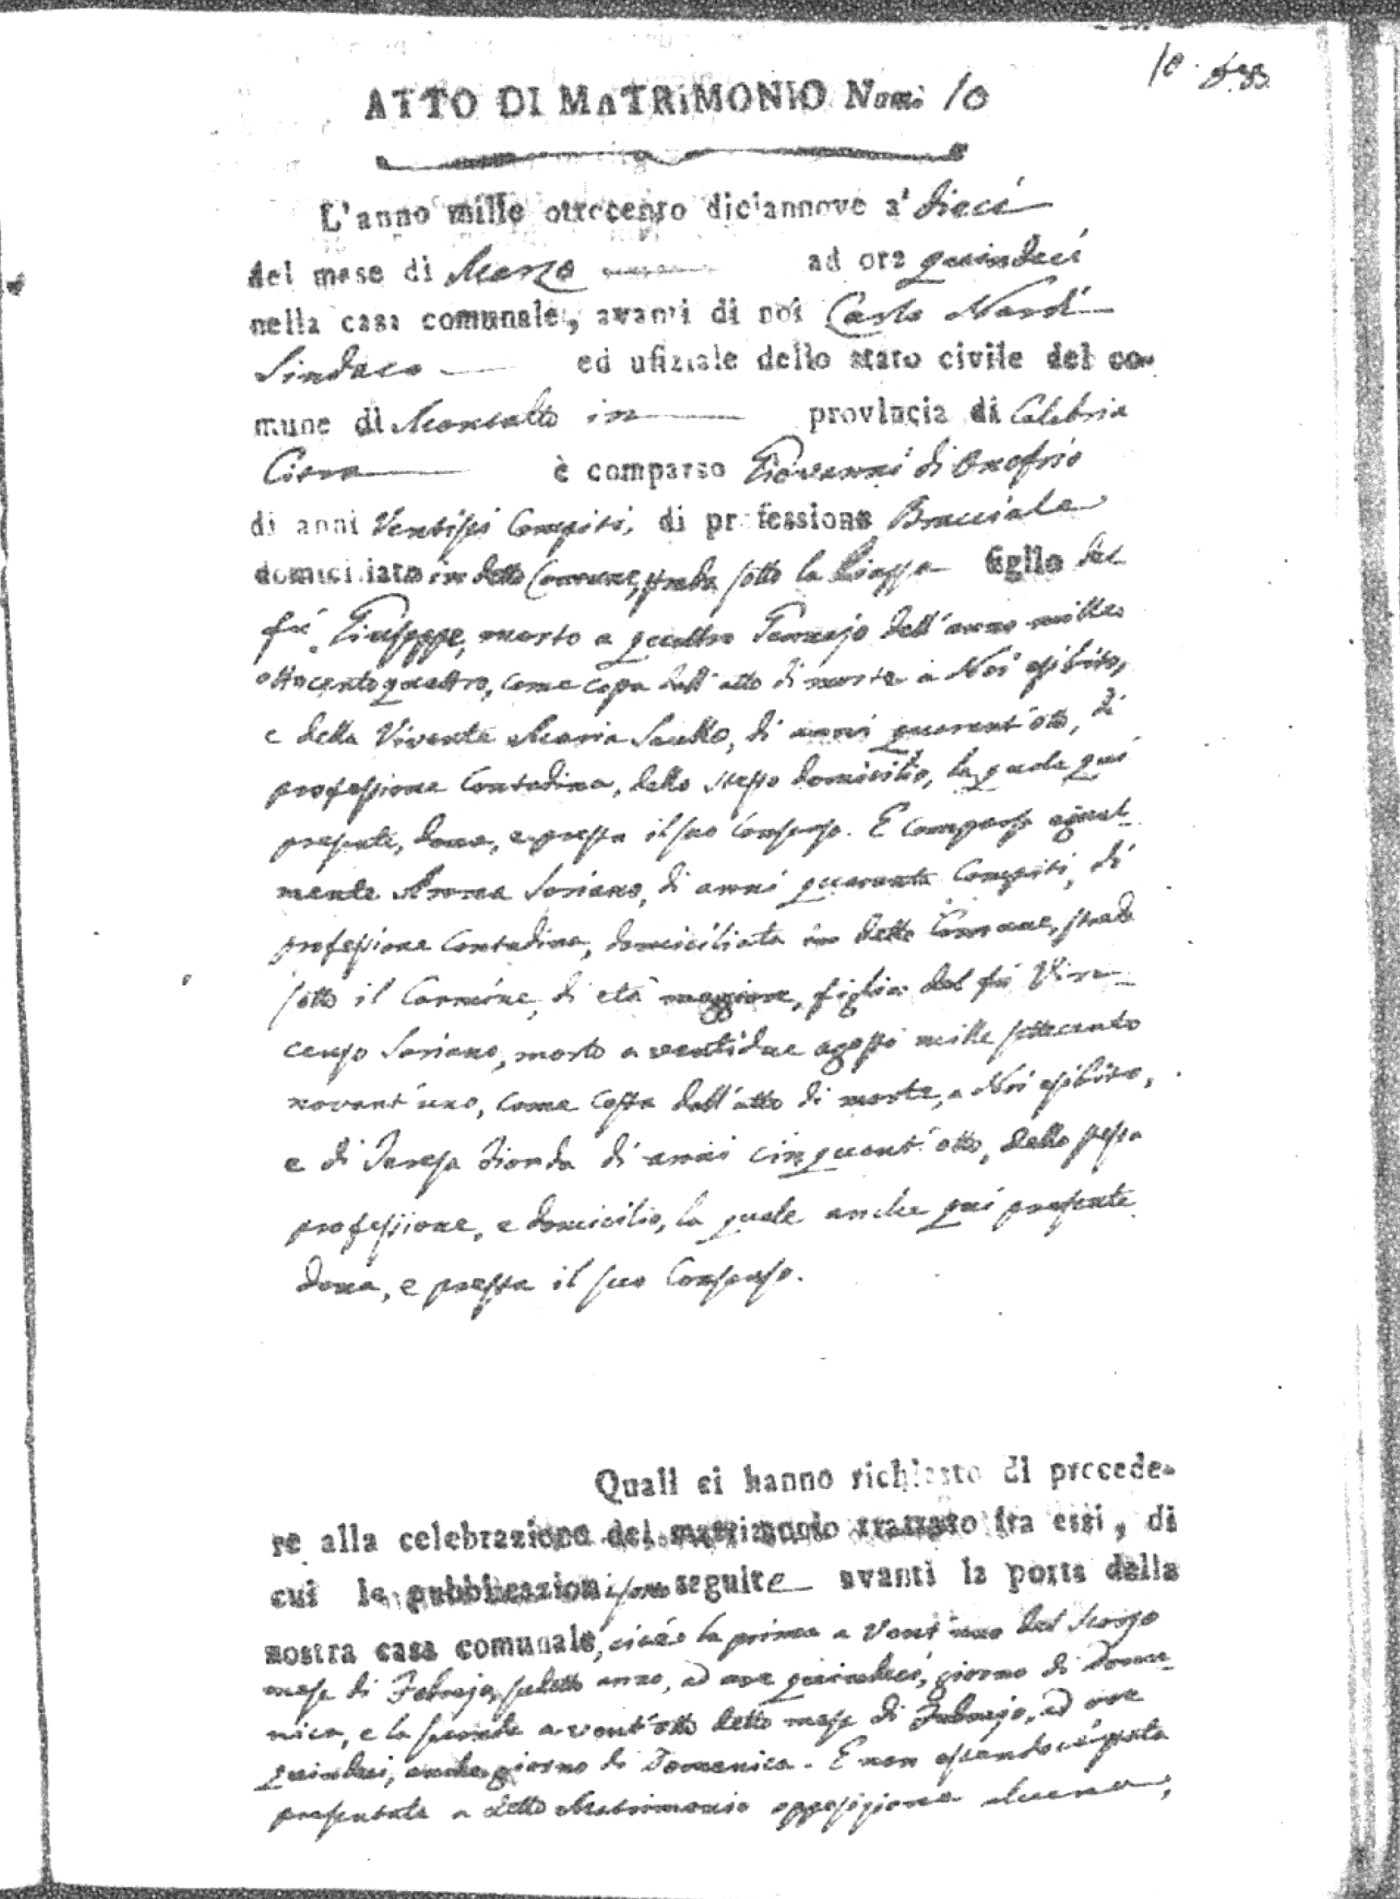 10.
ATTO DI MATRIMONIO Num. 10
L'anno mille ottocento diciannove a' dieci
del mese di Marzo ad ora quindeci
nella casa comunale, avanti di noi Carlo Nardi
Sindaco ed ufiziale dello stato civile del co-
mune di Montalto in provincia di Calabria
Citra è comparso Giovanni di Onofrio
di anni Ventisei Compiti, di professione Bracciale
domiciliato in detto Comune, strada sotto la Piazza figlio del
fù Giuseppe, morto a quattro Gennajo dell'anno mille
ottocentoquattro, come copia dall'atto di morte a Noi esibito,
e della Vivente Maria Saullo, di anni quarant'otto, di
professione Contadina, dello stesso domicilio, la quale quì
presente, dona, e presta il suo Consenso. E comparsa egual-
mente Anna Soriano, di anni quaranta Compiti, di
professione Contadina, domiciliata in detto Comune, strada
sotto il Carmine, di età maggiore, figlia del fù Vin-
cenzo Soriano, morto a ventidue agosto mille settecento
novant'uno, come costa dall'atto di morte, a Noi esibito,
e di Teresa di anni cinquant'otto, della stessa
professione, e domicilio, la quale anche quì presente
dona, e presta il suo Consenso.
Quali ci hanno richiesto di procede-
re alla celebrazione del matrimonio trattato fra essi, di
cui le pubblicazioni sono seguite avanti la porta della
nostra casa comunale, cioè la prima a vent'uno del scorso
mese di Febrajo, sudetto anno, ad ore quindeci, giorno di Dome-
nica, e la seconda a vent'otto detto mese di Febrajo, ad ore
quindeci, anche giorno di Domenica. E non essendoci stata
presentata a detto Matrimonio opposizione alcuna,